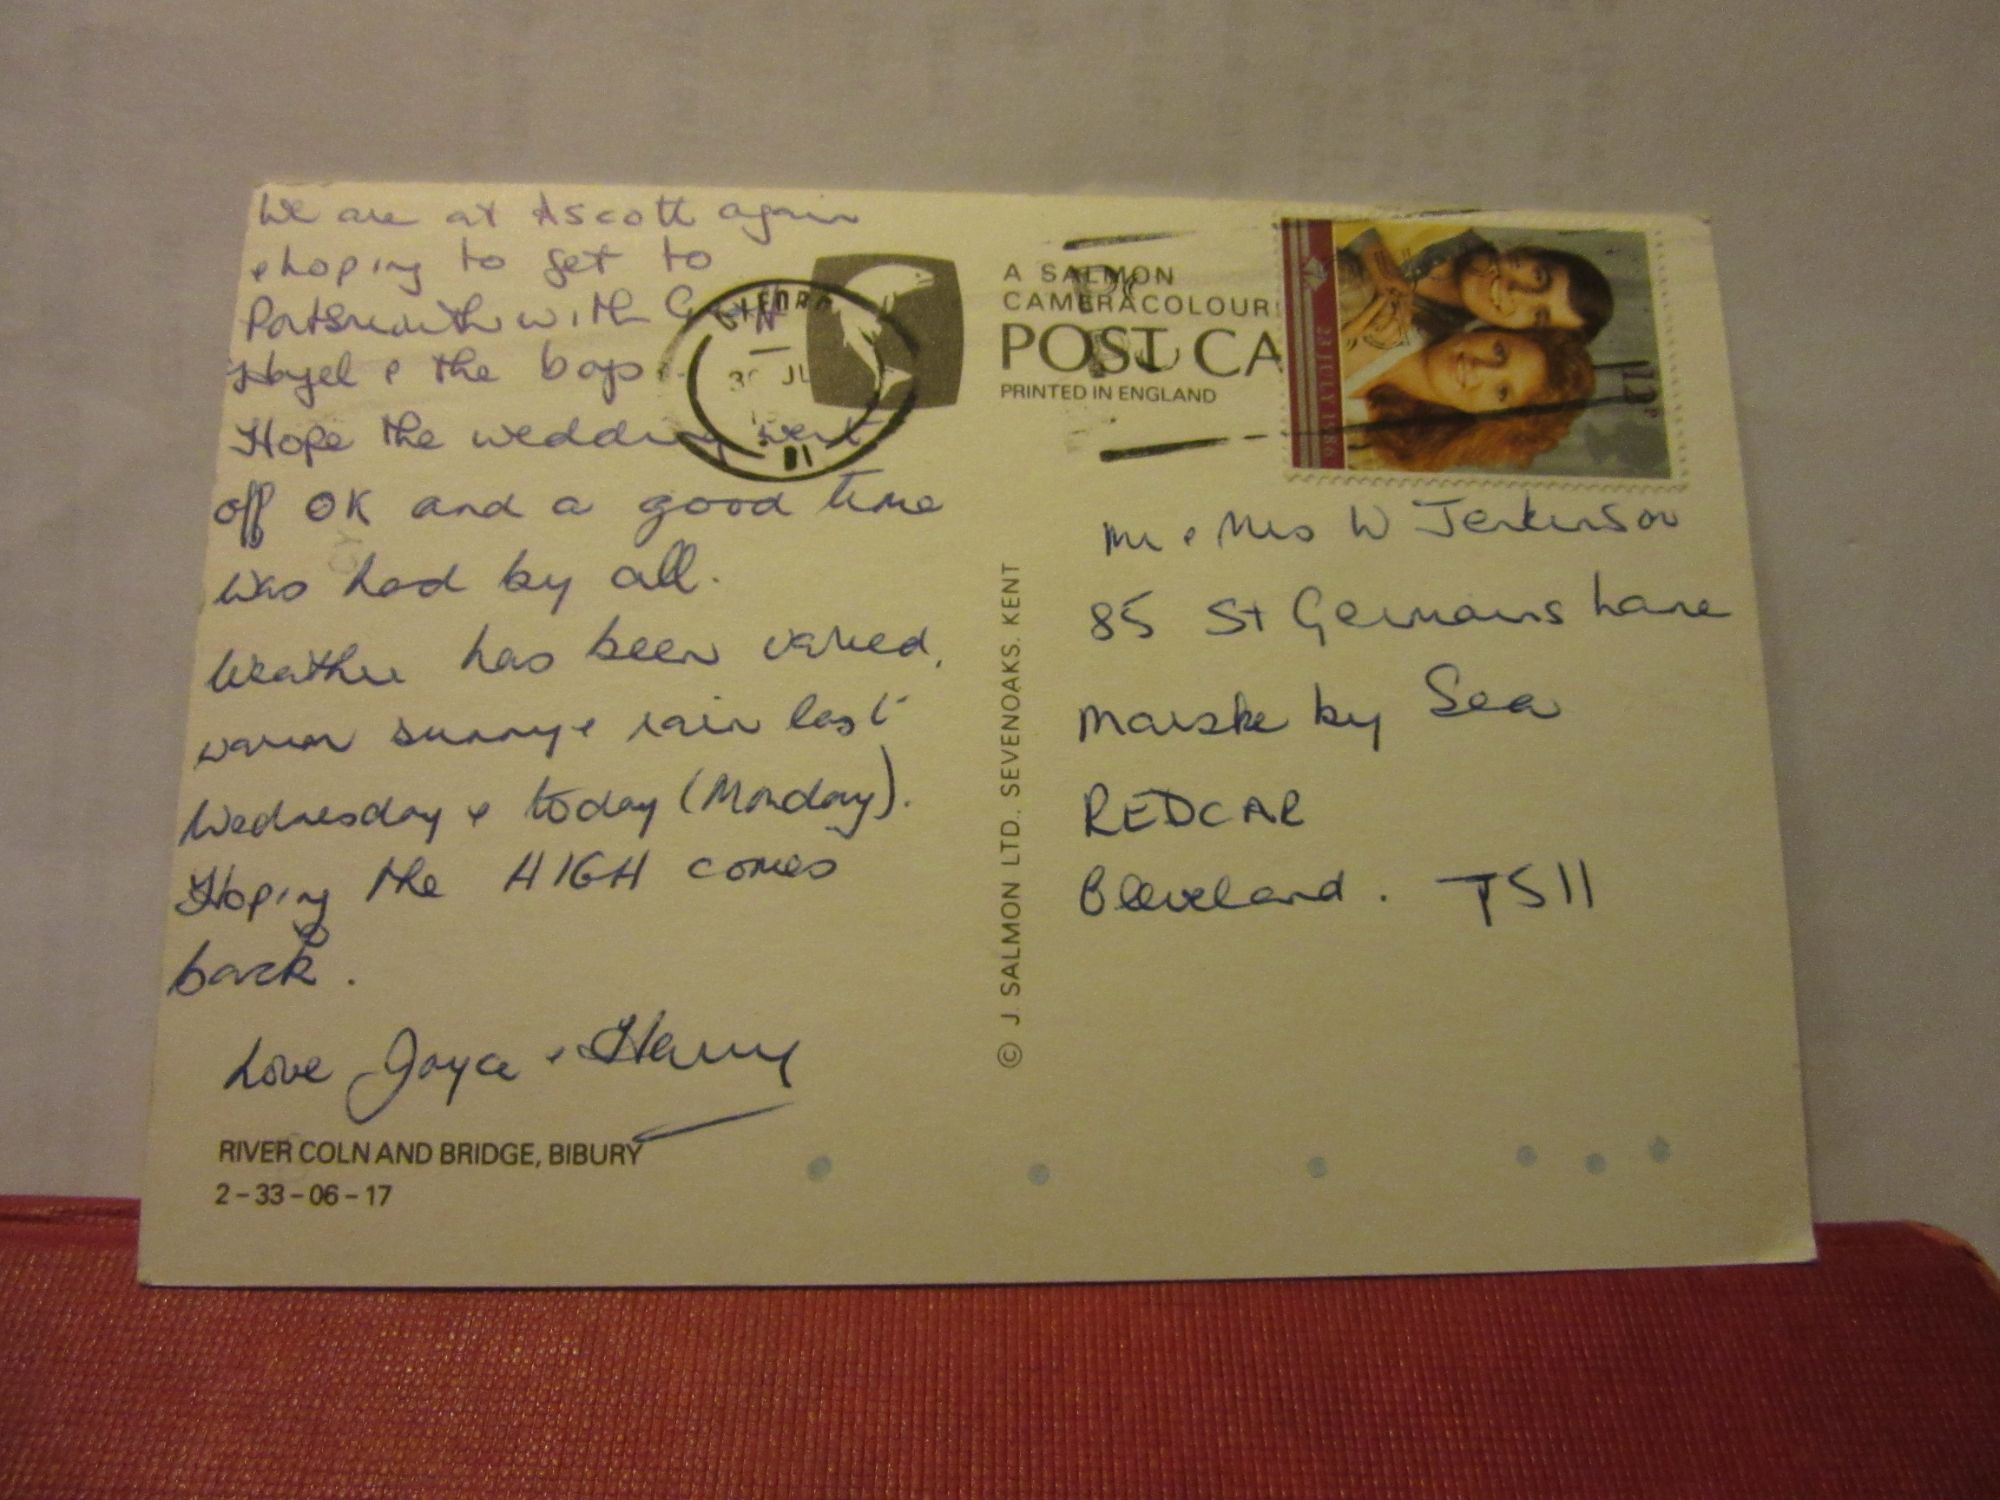 We are at Ascott again
& hoping to get to
Portsmouth with
Hazel & the boys
Hope the wedding went
off OK and a good time
was had by all.
Weather has been varied,
warm sunny & rain last
Wednesday & today (Monday).
Hoping the HIGH comes
back.
Love Joyce & Harry
RIVER COLN AND BRIDGE, BIBURY
2-33-06-17
30 JU
A SALMON
CAMERACOLOUR
POST CA
PRINTED IN ENGLAND
© J. SALMON LTD. SEVENOAKS. KENT
23 JULY 1986
12P
Mr & Mrs W Jenkinson
85 St Germains Lane
Marske by Sea
REDCAR
Cleveland. TS11